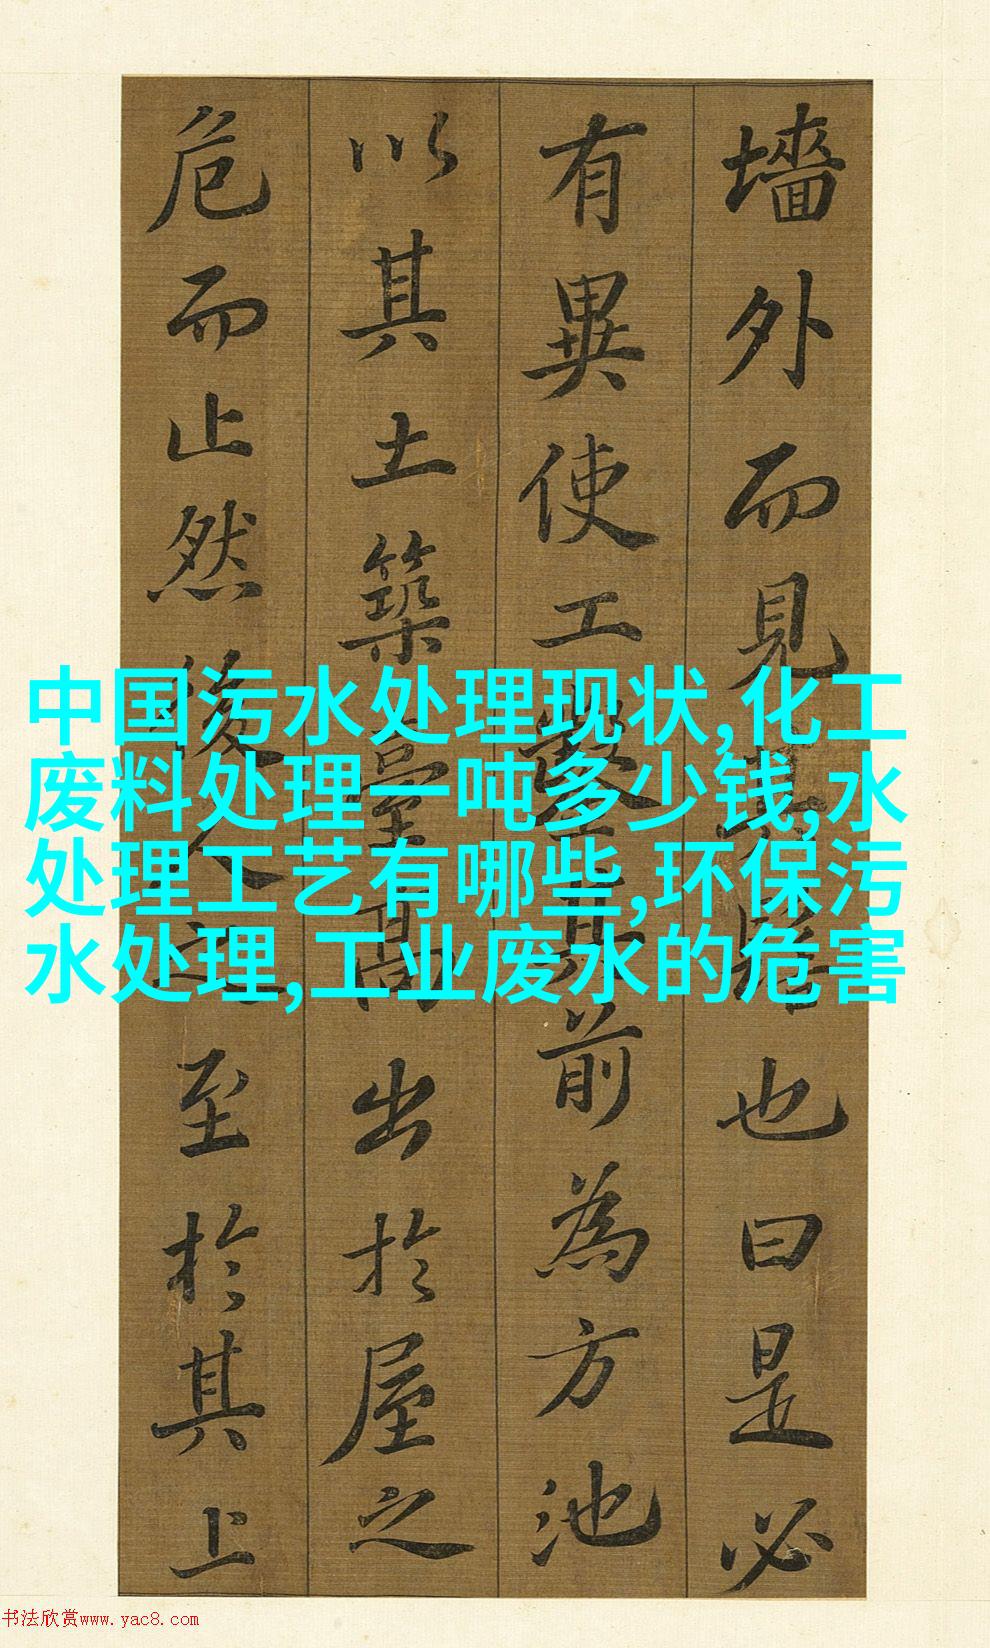 墻外而見其髻也曰是必
有異使工鑿其前為方池
以其土築臺高出於屋之
危而止然後人之至於其上
中国污水处理现状,化工
废料处理一吨多少钱,水
处理工艺有哪些,环保污
水处理,工业废水的危害
书法欣赏www.yac8.com